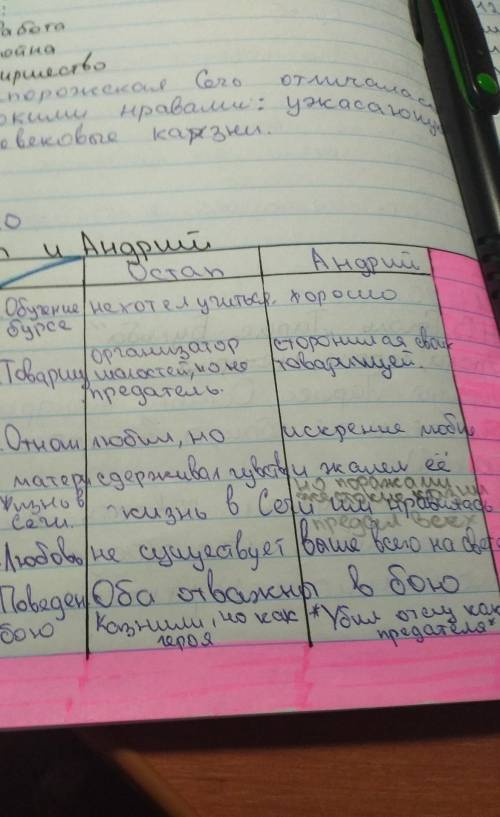 работа
война
пиршество
порожская Сечь отличалась
окими нравами: ужасающие
вековые казни.
и Андрий
Остап Андрий
Обучение не хотел учиться. хорошо
бурсе
организатор сторонился своих
Товарищ шалостей, но не товарищей.
предатель.
Отнош любил, но искренне люби
матери сдерживал чувства и жалел её
но поражали
Жизнь в жестокие казни
Сечи. жизнь в Сечи им нравилась
предал всех
Любовь не существует выше всего на свете
Поведен Оба отважны в бою
бою Казнили, но как *Убил отец как
героя предателя*